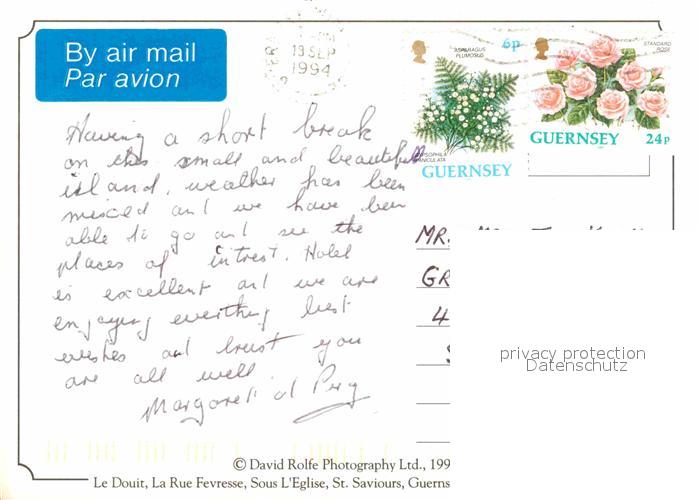 By air mail
Par avion
13 SEP
1994
ASPARAGUS
PLUMOSUS
6p
GYPSOPHILA
PANICULATA
GUERNSEY
STANDARD
ROSE
GUERNSEY 24p
Having a short break
on this small and beautiful
island, weather has been
mixed and we have been
able to go and see the
places of intrest. Hotel
is excellent and we are
enjoying everthing best
wishes and trust you
are all well
Margaret
MR.
GR
4
privacy protection
Datenschutz
© David Rolfe Photography Ltd., 199
Le Douit, La Rue Fevresse, Sous L'Eglise, St. Saviours, Guerns